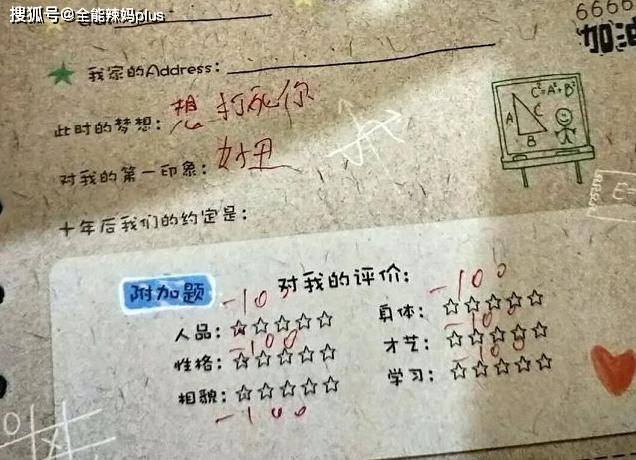 搜狐号@全能辣妈plus
6666
加油
我家的Address:
此时的梦想: 想打死你
C²=A²+B²
A
C
B
对我的第一印象: 好丑
十年后我们的约定是:
附加题
对我的评价:
-100
-100
人品: ☆☆☆☆☆
身体: ☆☆☆☆☆
-100
-100
性格: ☆☆☆☆☆
才艺: ☆☆☆☆☆
-100
相貌: ☆☆☆☆☆
学习: ☆☆☆☆☆
-100